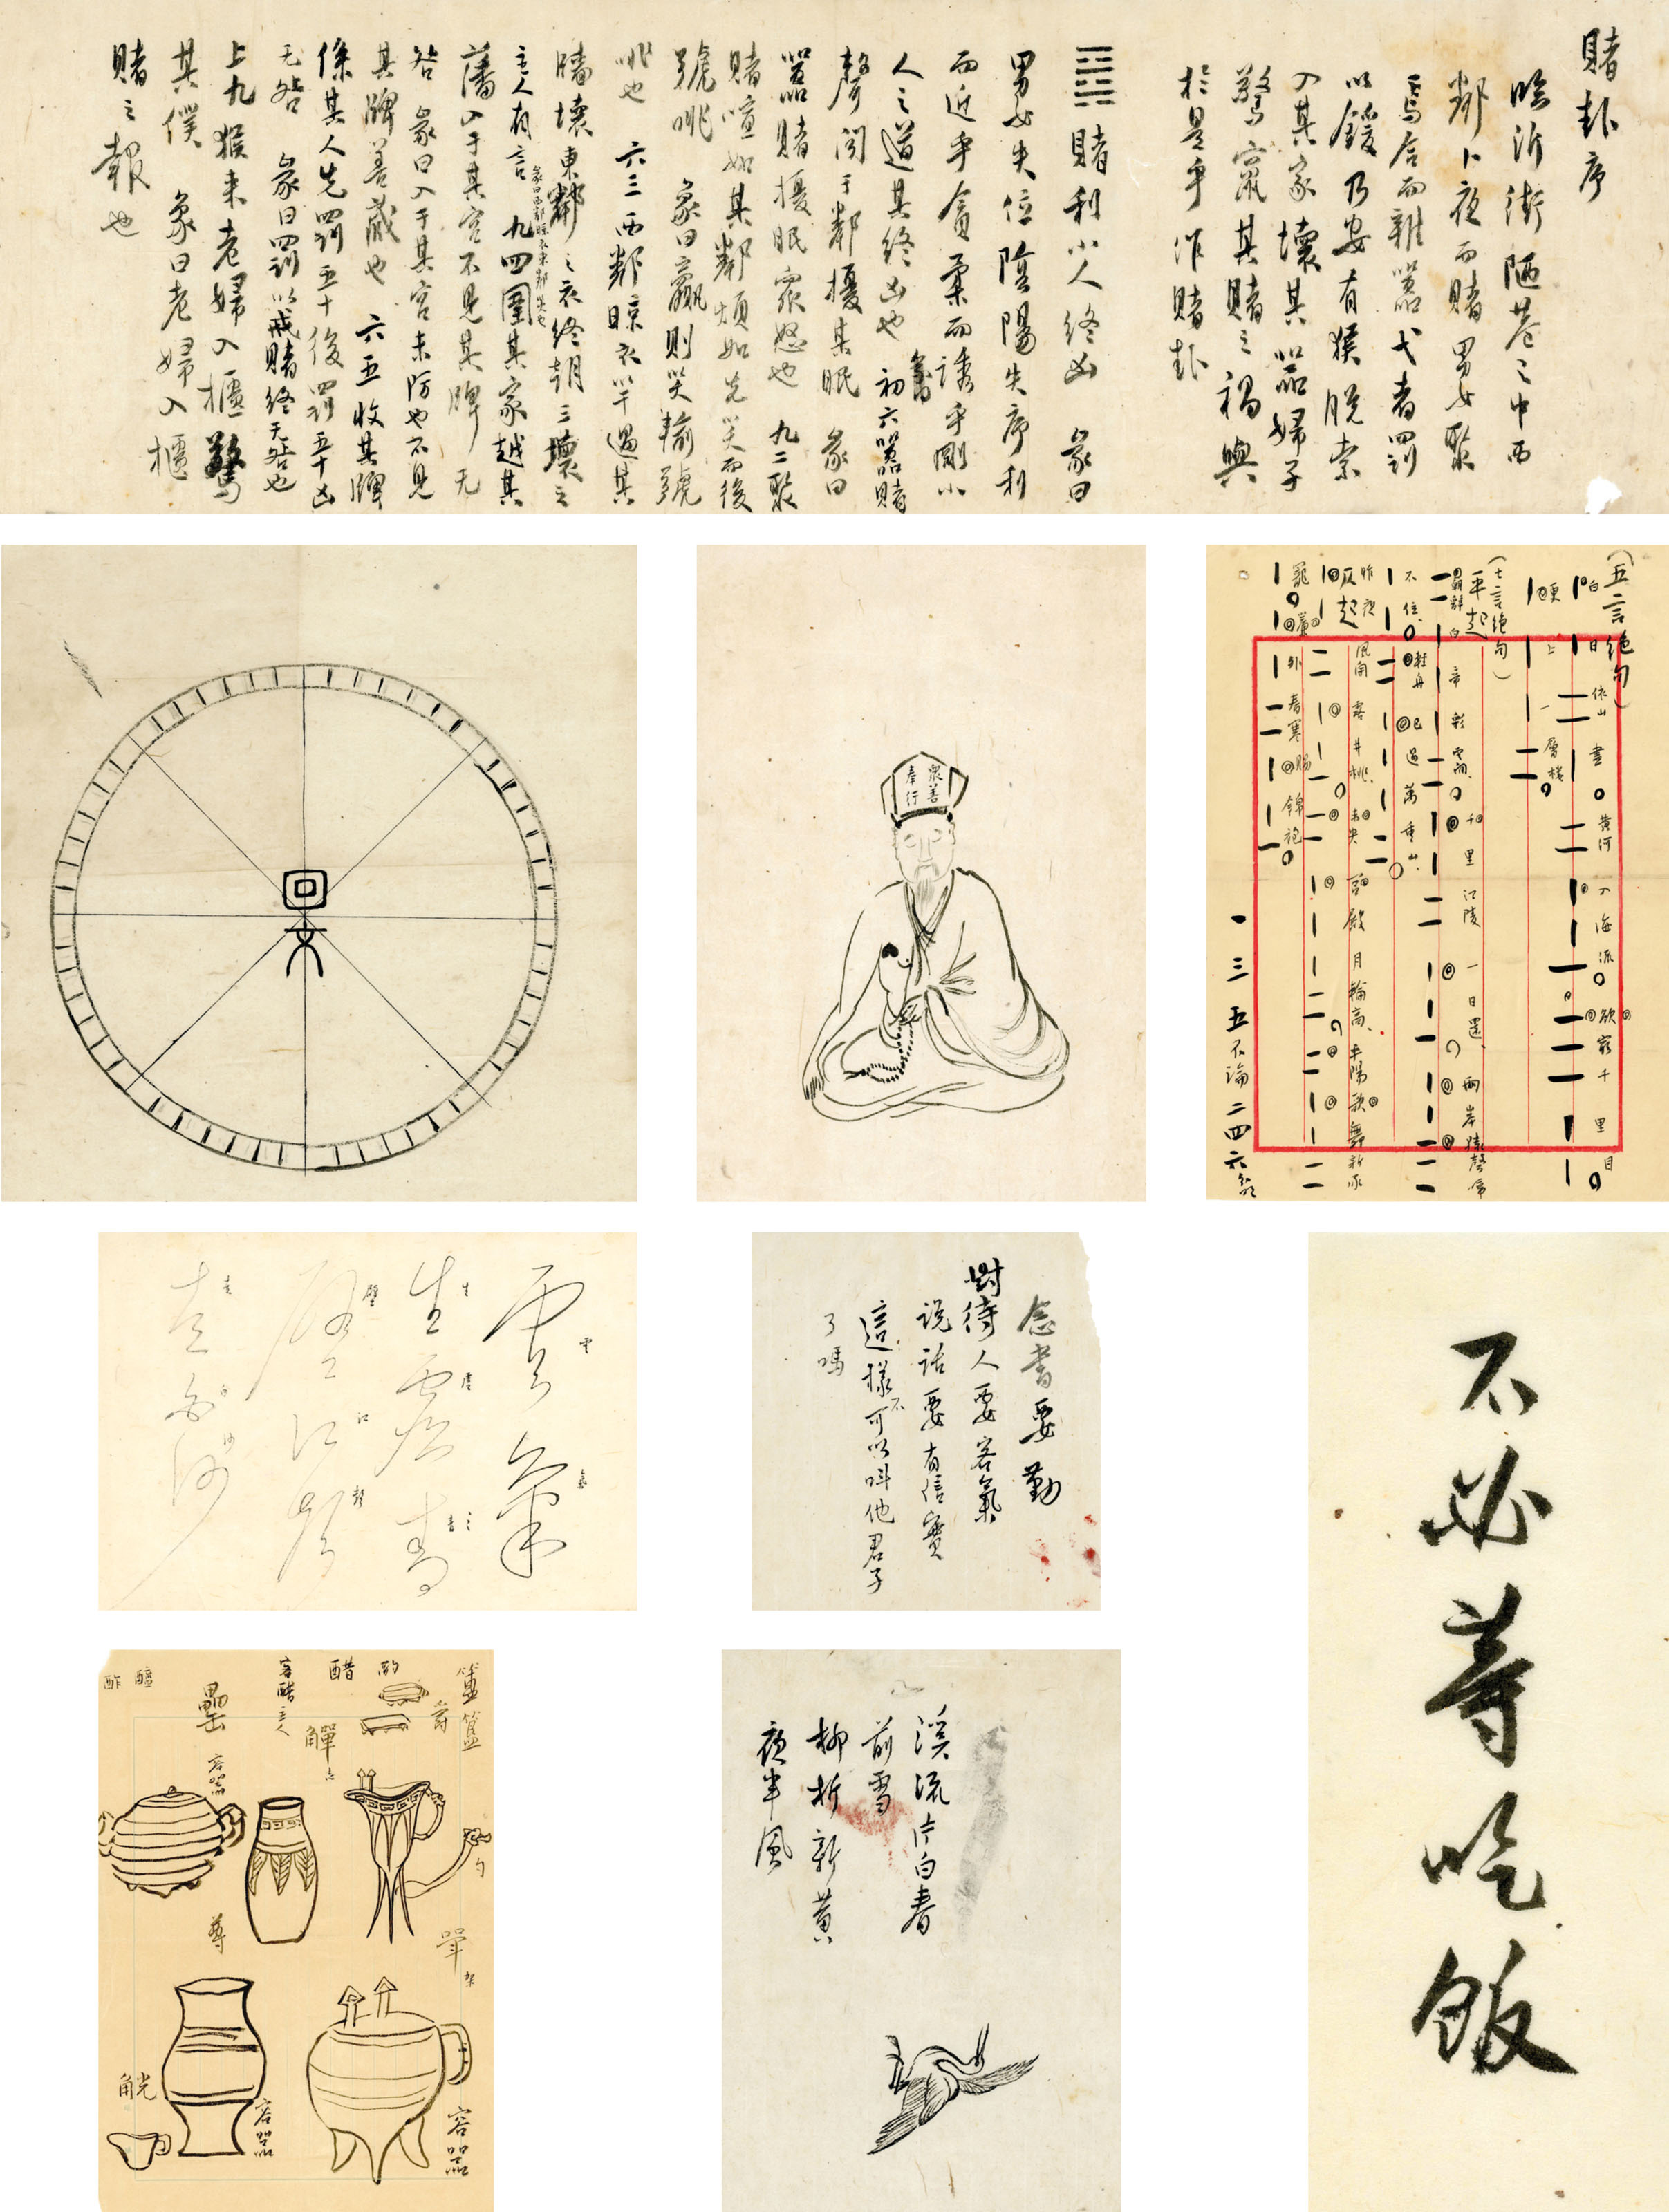 賭卦序
臨沂街陋巷之中西
鄰卜夜而賭男女聚
焉居而雜囂弋者罰
以鍰乃安有猴脫索
入其家壞其器婦子
驚竄其賭之禍與
於是乎作賭卦
賭利小人終凶 彖曰
男女失位陰陽失序利
而近乎貪柔而誘乎剛小
人之道其終凶也 初六囂賭
聲聞于鄰擾其眠 象曰
囂賭擾眠眾怒也 九二聚
賭喧如其鄰煩如先笑而後
號咷 象曰贏則笑輸號
咷也 六三西鄰晾衣竿過其
牆壞東鄰之衣終朝三壞之
主人有言 九四圍其家越其
藩入于其宮不見其牌无
咎 象曰入于其宮未防也不見
其牌善藏也 六五收其牌
係其人先罰五十後罰五十凶
无咎 象曰罰以戒賭終无咎也
上九猴來老婦入櫃驚
其僕 象曰老婦入櫃
賭之報也
眾善
奉行
(五言絕句)
白日依山盡 黃河入海流 欲窮千里目
更上一層樓
(七言絕句)
平起
朝辭白帝彩雲間 千里江陵一日還 兩岸猿聲啼
不住 輕舟已過萬重山
仄起
昨夜風開露井桃 未央前殿月輪高 平陽歌舞新承
寵 簾外春寒賜錦袍
一三五不論二四六分明
雲氣
生虛
壁江
走白沙
念書要勤
對待人要客氣
說話要有信實
這樣不可以叫他君子
了嗎
不必等吃飯
簠簋
爵
酌
醋
客醋主人
觶
罍
容器
醯
酢
勺
尊
斝
容器
觥
容器
溪流片白春
前雪
柳折新黃
夜半風